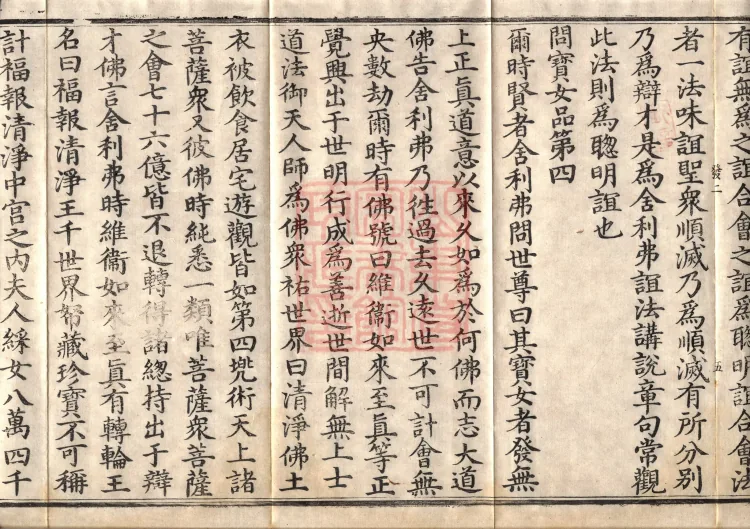 有誼無爲之誼合會之誼爲聰明誼合會法
者一法味誼聖衆順滅乃爲順滅有所分別
乃爲辯才是爲舍利弗誼法講說章句常觀
此法則爲聰明誼也
問寶女品第四
爾時賢者舍利弗問世尊曰其寶女者發無
上正眞道意以來久如爲於何佛而志大道
佛告舍利弗乃徃過去久遠世不可計會無
央數劫爾時有佛號曰維衞如來至眞等正
覺興出于世明行成爲善逝世間解無上士
道法御天人師爲佛衆祐世界曰清淨佛土
衣被飲食居宅遊觀皆如第四兠術天上諸
菩薩衆又彼佛時純悉一類唯菩薩衆菩薩
之會七十六億皆不退轉得諸緫持出于辯
才佛言舍利弗時維衞如來至眞有轉輪王
名曰福報清淨王千世界帑藏珍寶不可稱
計福報清淨中宮之内夫人綵女八萬四千
發二
五